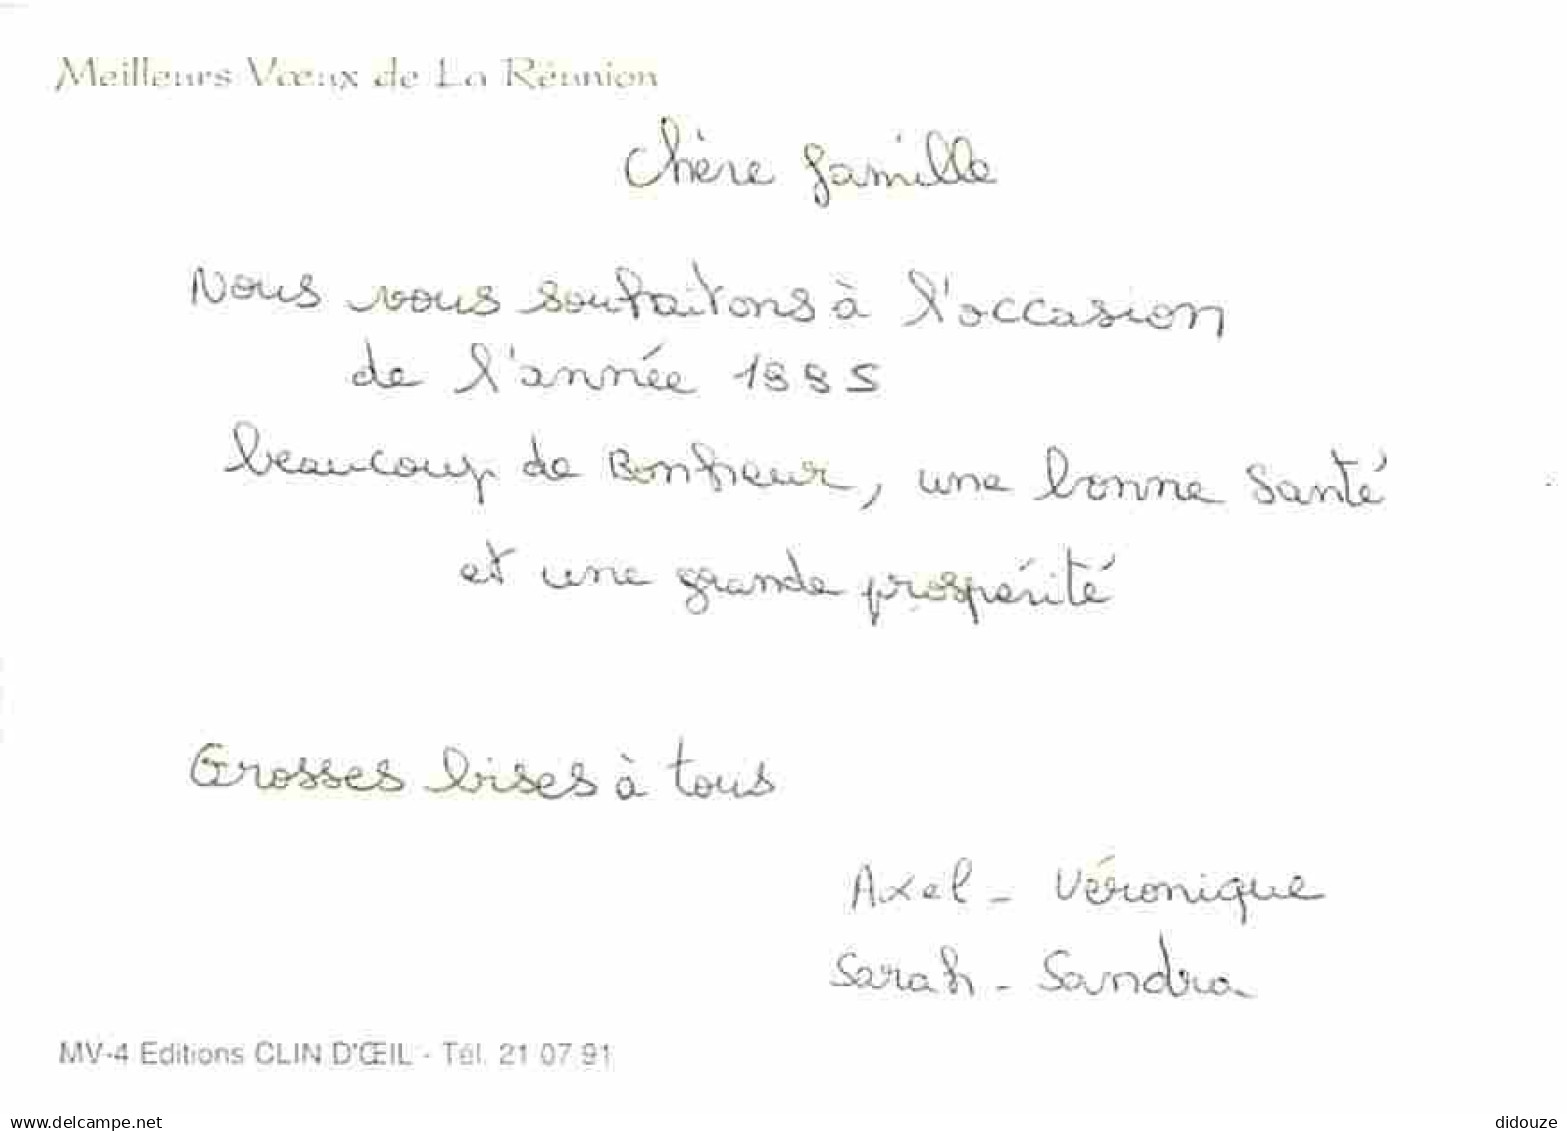 Meilleurs Vœux de La Réunion
Chère famille
Nous vous souhaitons à l'occasion
de l'année 1995
beaucoup de Bonheur, une bonne santé
et une grande prospérité
Grosses bises à tous
Axel - Véronique
Sarah - Sandra
MV-4 Editions CLIN D'ŒIL - Tél. 21 07 91
delcampe.net
didouze